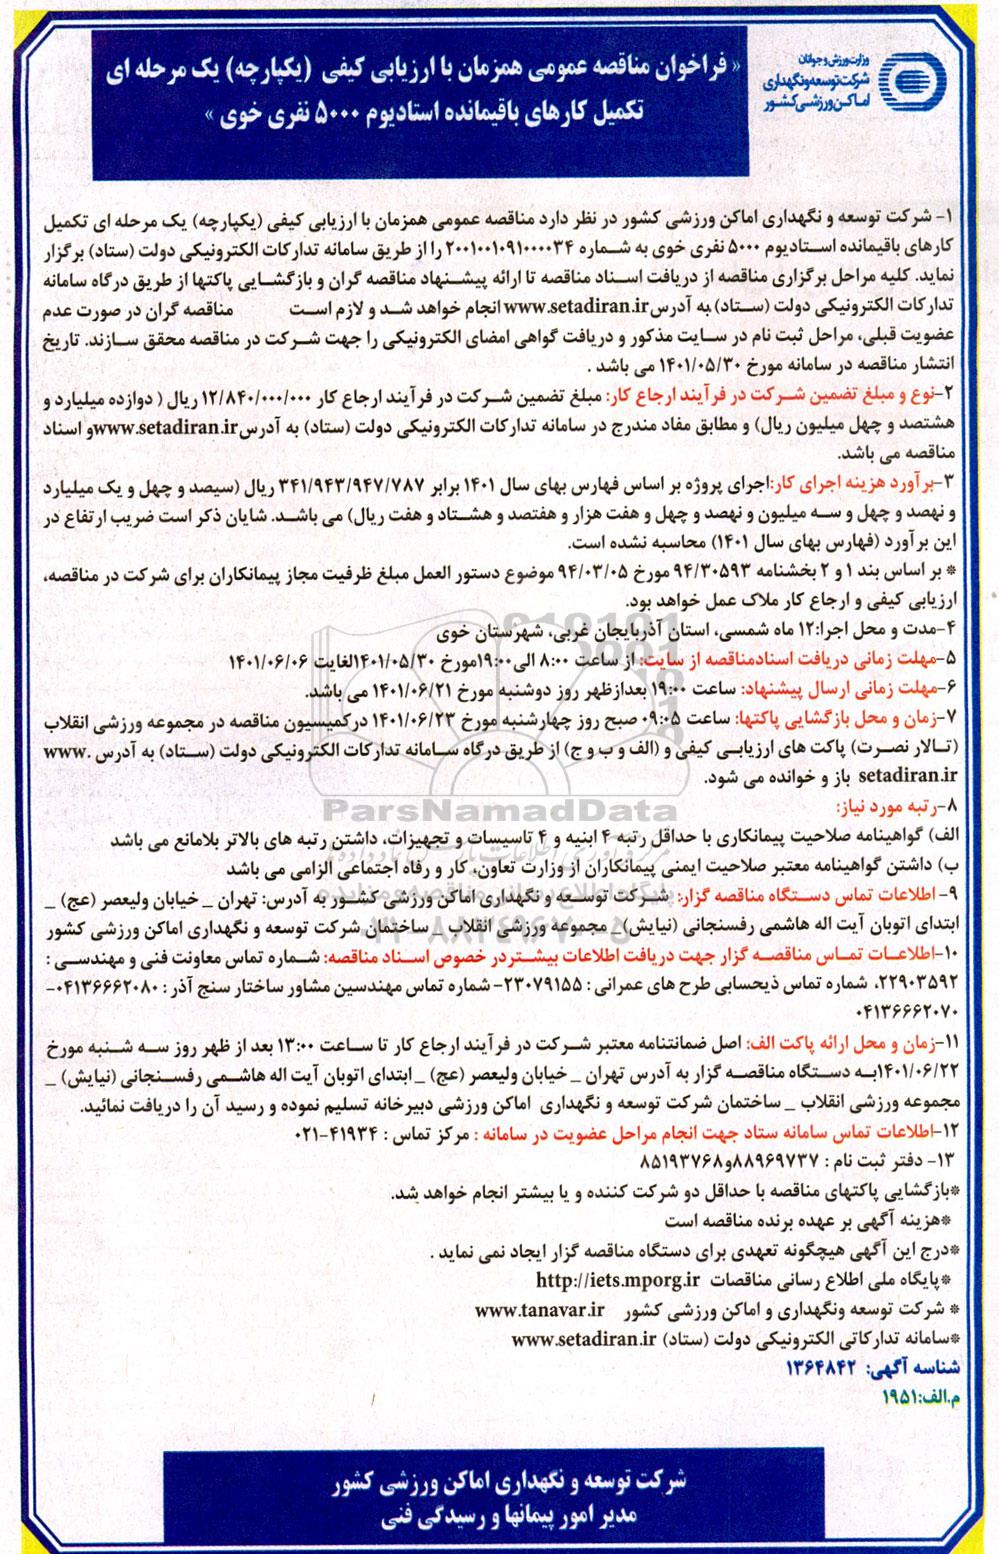 وزارت ورزش و جوانان
شرکت توسعه و نگهداری
اماکن ورزشی کشور
« فراخوان مناقصه عمومی همزمان با ارزیابی کیفی (یکپارچه) یک مرحله ای
تکمیل کارهای باقیمانده استادیوم ۵۰۰۰ نفری خوی »
۱- شرکت توسعه و نگهداری اماکن ورزشی کشور در نظر دارد مناقصه عمومی همزمان با ارزیابی کیفی (یکپارچه) یک مرحله ای تکمیل
کارهای باقیمانده استادیوم ۵۰۰۰ نفری خوی به شماره ۲۰۰۱۰۰۱۰۹۱۰۰۰۰۳۴ را از طریق سامانه تدارکات الکترونیکی دولت (ستاد) برگزار
نماید. کلیه مراحل برگزاری مناقصه از دریافت اسناد مناقصه تا ارائه پیشنهاد مناقصه گران و بازگشایی پاکتها از طریق درگاه سامانه
تدارکات الکترونیکی دولت (ستاد) به آدرس www.setadiran.ir انجام خواهد شد و لازم است مناقصه گران در صورت عدم
عضویت قبلی، مراحل ثبت نام در سایت مذکور و دریافت گواهی امضای الکترونیکی را جهت شرکت در مناقصه محقق سازند. تاریخ
انتشار مناقصه در سامانه مورخ ۱۴۰۱/۰۵/۳۰ می باشد .
۲-نوع و مبلغ تضمین شرکت در فرآیند ارجاع کار: مبلغ تضمین شرکت در فرآیند ارجاع کار ۱۲/۸۴۰/۰۰۰/۰۰۰ ریال ( دوازده میلیارد و
هشتصد و چهل میلیون ریال) و مطابق مفاد مندرج در سامانه تدارکات الکترونیکی دولت (ستاد) به آدرس www.setadiran.ir و اسناد
مناقصه می باشد.
۳-برآورد هزینه اجرای کار:اجرای پروژه بر اساس فهارس بهای سال ۱۴۰۱ برابر ۳۴۱/۹۴۳/۹۴۷/۷۸۷ ریال (سیصد و چهل و یک میلیارد
و نهصد و چهل و سه میلیون و نهصد و چهل و هفت هزار و هفتصد و هشتاد و هفت ریال) می باشد. شایان ذکر است ضریب ارتفاع در
این برآورد (فهارس بهای سال ۱۴۰۱) محاسبه نشده است.
* بر اساس بند ۱ و ۲ بخشنامه ۹۴/۳۰۵۹۳ مورخ ۹۴/۰۳/۰۵ موضوع دستور العمل مبلغ ظرفیت مجاز پیمانکاران برای شرکت در مناقصه،
ارزیابی کیفی و ارجاع کار ملاک عمل خواهد بود.
۴-مدت و محل اجرا:۱۲ ماه شمسی، استان آذربایجان غربی، شهرستان خوی
۵-مهلت زمانی دریافت اسنادمناقصه از سایت: از ساعت ۸:۰۰ الی۱۹:۰۰مورخ ۱۴۰۱/۰۵/۳۰لغایت ۱۴۰۱/۰۶/۰۶
۶-مهلت زمانی ارسال پیشنهاد: ساعت ۱۹:۰۰ بعدازظهر روز دوشنبه مورخ ۱۴۰۱/۰۶/۲۱ می باشد.
۷-زمان و محل بازگشایی پاکتها: ساعت ۰۹:۰۵ صبح روز چهارشنبه مورخ ۱۴۰۱/۰۶/۲۳ درکمیسیون مناقصه در مجموعه ورزشی انقلاب
(تالار نصرت) پاکت های ارزیابی کیفی و (الف و ب و ج) از طریق درگاه سامانه تدارکات الکترونیکی دولت (ستاد) به آدرس www.
setadiran.ir باز و خوانده می شود.
۸-رتبه مورد نیاز:
الف) گواهینامه صلاحیت پیمانکاری با حداقل رتبه ۴ ابنیه و ۴ تاسیسات و تجهیزات، داشتن رتبه های بالاتر بلامانع می باشد
ب) داشتن گواهینامه معتبر صلاحیت ایمنی پیمانکاران از وزارت تعاون، کار و رفاه اجتماعی الزامی می باشد
۹- اطلاعات تماس دستگاه مناقصه گزار: شرکت توسعه و نگهداری اماکن ورزشی کشور به آدرس: تهران _ خیابان ولیعصر (عج) _
ابتدای اتوبان آیت اله هاشمی رفسنجانی (نیایش)_ مجموعه ورزشی انقلاب _ ساختمان شرکت توسعه و نگهداری اماکن ورزشی کشور
۱۰-اطلاعات تماس مناقصه گزار جهت دریافت اطلاعات بیشتردر خصوص اسناد مناقصه: شماره تماس معاونت فنی و مهندسی :
۲۲۹۰۳۵۹۲، شماره تماس ذیحسابی طرح های عمرانی : ۲۳۰۷۹۱۵۵- شماره تماس مهندسین مشاور ساختار سنج آذر : ۰۴۱۳۶۶۶۲۰۸۰-
۰۴۱۳۶۶۶۲۰۷۰
۱۱-زمان و محل ارائه پاکت الف: اصل ضمانتنامه معتبر شرکت در فرآیند ارجاع کار تا ساعت ۱۳:۰۰ بعد از ظهر روز سه شنبه مورخ
۱۴۰۱/۰۶/۲۲به دستگاه مناقصه گزار به آدرس تهران _ خیابان ولیعصر (عج) _ ابتدای اتوبان آیت اله هاشمی رفسنجانی (نیایش) _
مجموعه ورزشی انقلاب _ ساختمان شرکت توسعه و نگهداری اماکن ورزشی دبیرخانه تسلیم نموده و رسید آن را دریافت نمائید.
۱۲-اطلاعات تماس سامانه ستاد جهت انجام مراحل عضویت در سامانه : مرکز تماس : ۴۱۹۳۴-۰۲۱
۱۳- دفتر ثبت نام : ۸۸۹۶۹۷۳۷و۸۵۱۹۳۷۶۸
*بازگشایی پاکتهای مناقصه با حداقل دو شرکت کننده و یا بیشتر انجام خواهد شد.
*هزینه آگهی بر عهده برنده مناقصه است
*درج این آگهی هیچگونه تعهدی برای دستگاه مناقصه گزار ایجاد نمی نماید .
*پایگاه ملی اطلاع رسانی مناقصات http://iets.mporg.ir
* شرکت توسعه ونگهداری و اماکن ورزشی کشور www.tanavar.ir
*سامانه تدارکاتی الکترونیکی دولت (ستاد) www.setadiran.ir
شناسه آگهی: ۱۳۶۴۸۴۲
م.الف:۱۹۵۱
شرکت توسعه و نگهداری اماکن ورزشی کشور
مدیر امور پیمانها و رسیدگی فنی
ParsNamadData